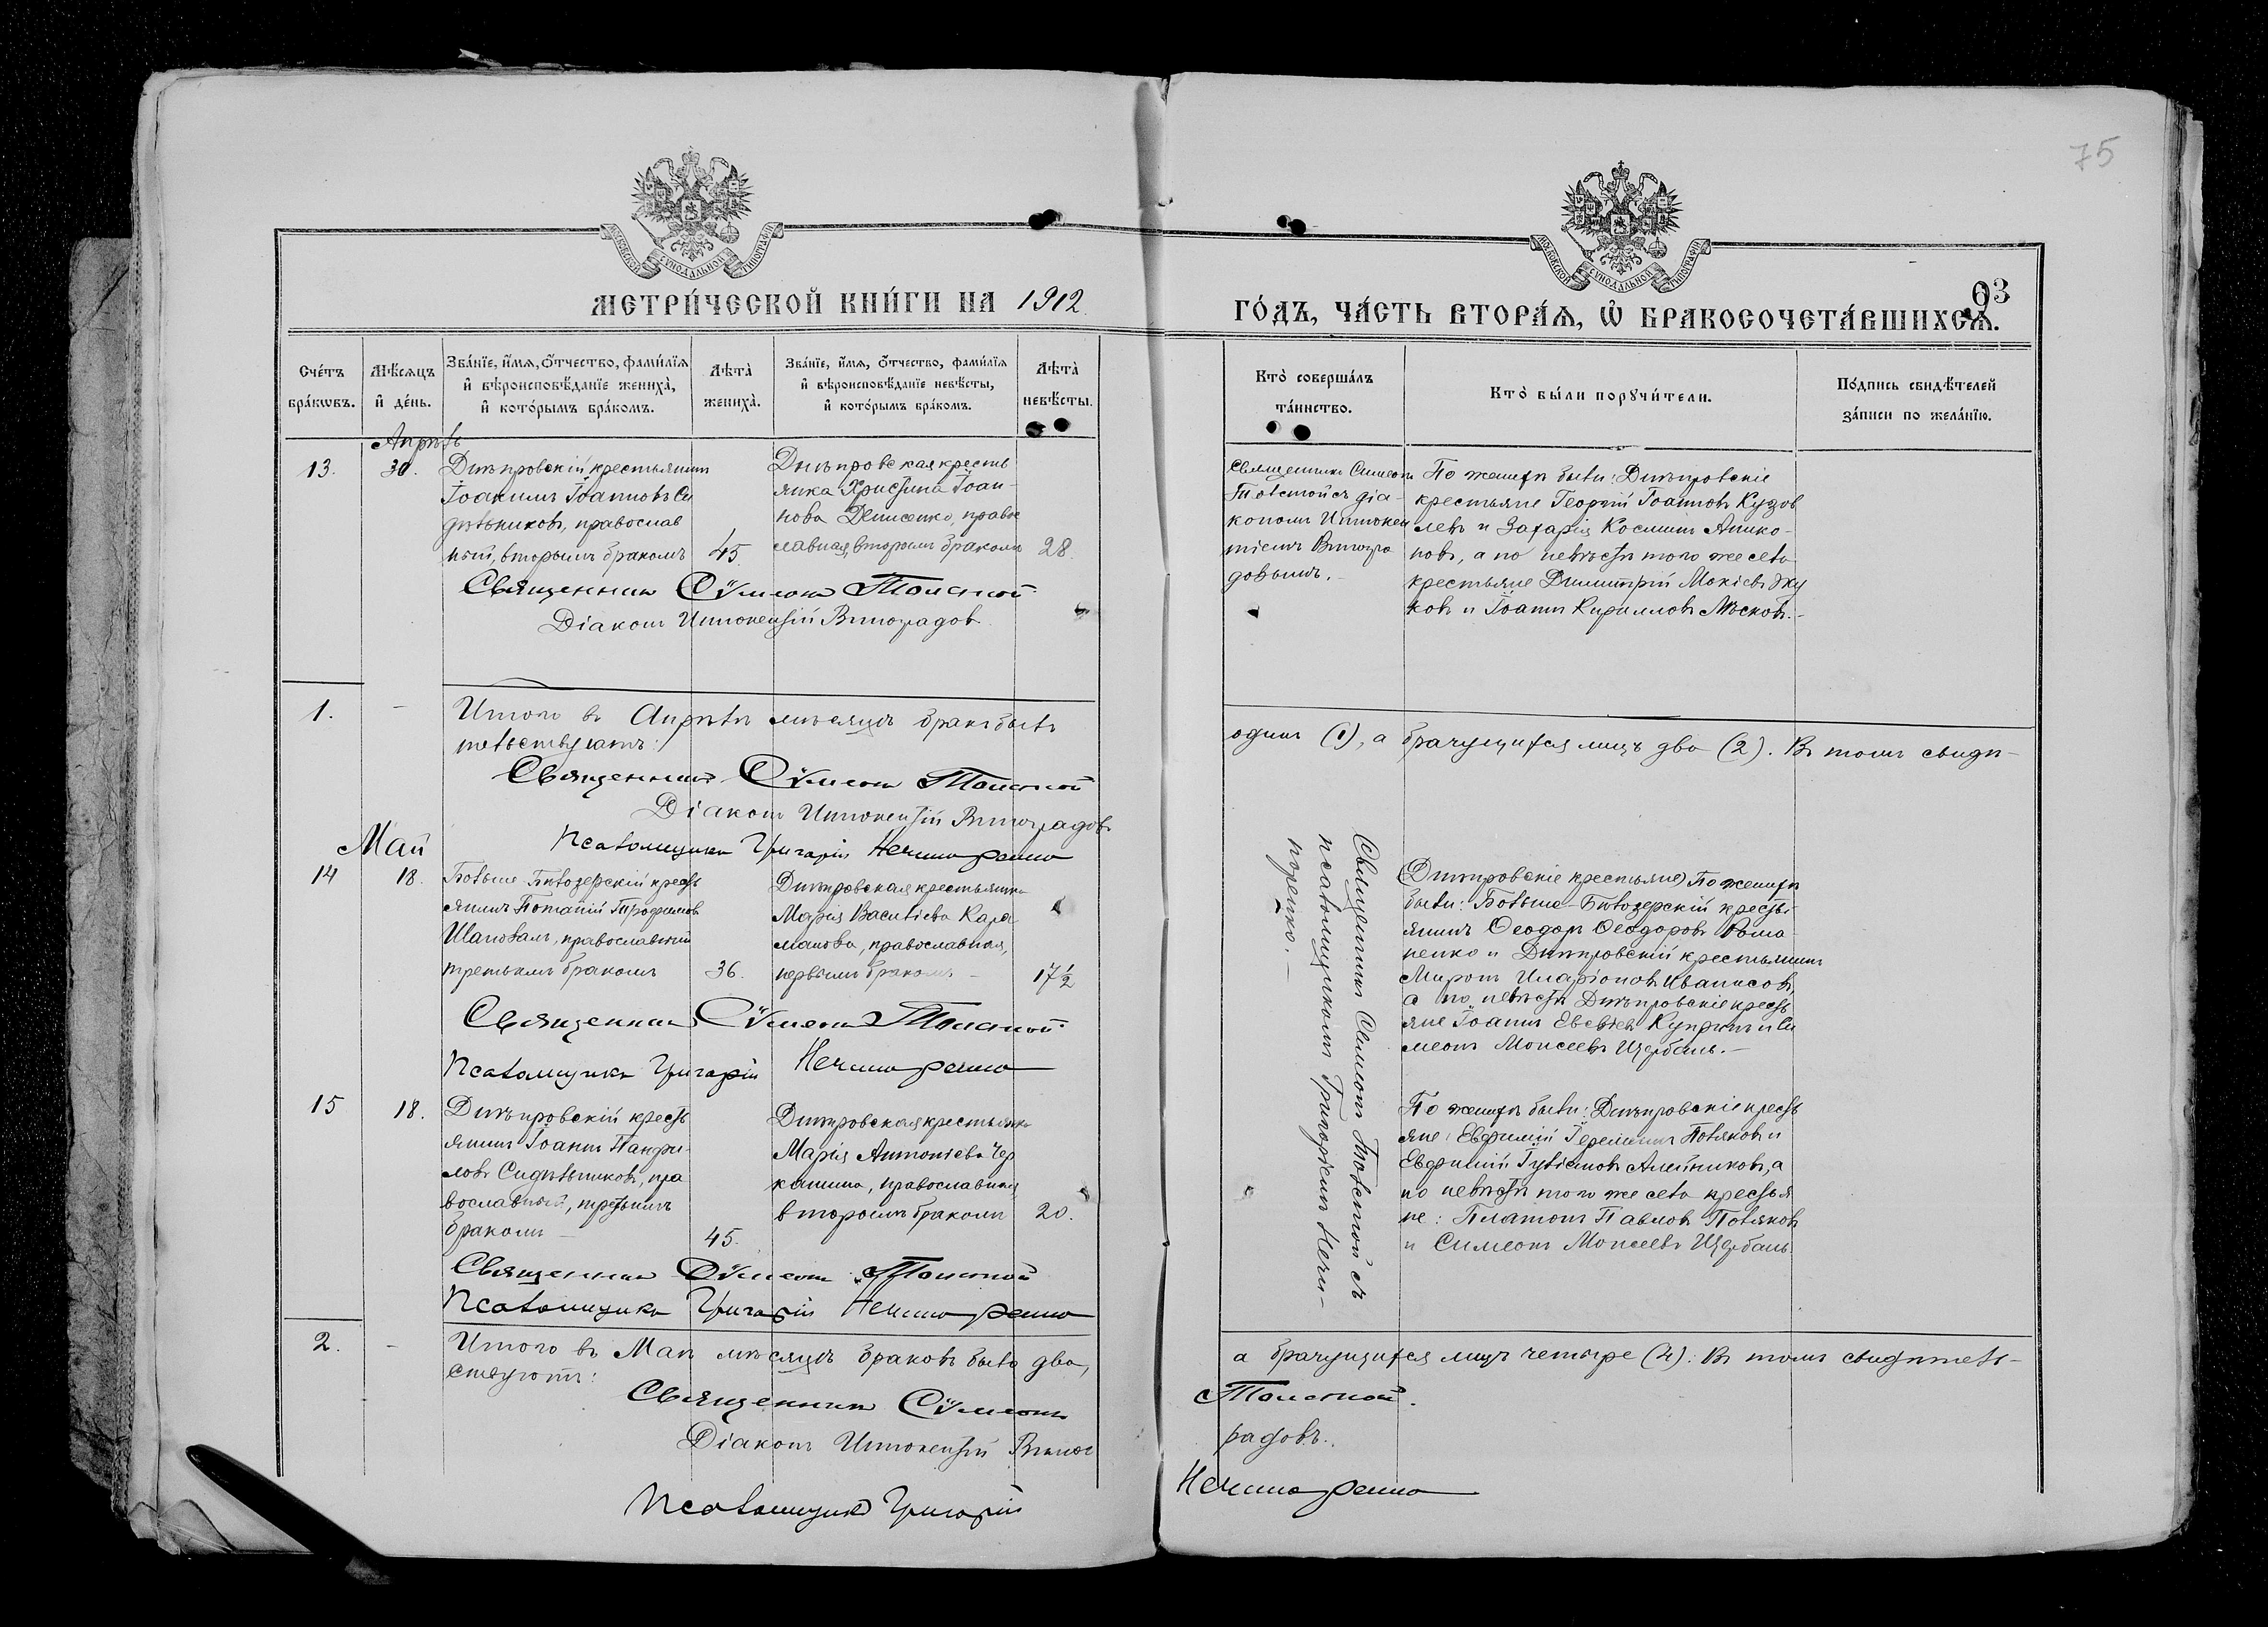 75
МОСКОВСКОЙ СѴНОДАЛЬНОЙ ТИПОГРАФІИ
МОСКОВСКОЙ СѴНОДАЛЬНОЙ ТИПОГРАФІИ
МЕТРИ́ЧЕСКОЙ КНИ́ГИ НА 1912
ГО́ДЪ, ЧА́СТЬ ВТОРА́Я, Ѡ҆ БРАКОСОЧЕТА́ВШИХСЯ.
93
Сче́тъ
бра́кѡвъ.
Мѣ́сяцъ
и҆ де́нь.
Зва́нїе, и҆́мя, ѻ҆́тчество, фами́лїя
и҆ вѣроисповѣ́данїе жениха̀,
и҆ кото́рымъ бра́комъ.
Лѣта̀
жениха̀.
Зва́нїе, и҆́мя, ѻ҆́тчество, фами́лїя
и҆ вѣроисповѣ́данїе невѣ́сты,
и҆ кото́рымъ бра́комъ.
Лѣта̀
невѣ́сты.
Кто̀ соверша́лъ
та́инство.
Кто̀ бы́ли порꙋчи́тели.
По́дпись свидѣ́телей
за́писи по жела́нїю.
Апрѣль
13.
30.
Днѣпровскій крестьянинъ
Іоакимъ Іоанновъ Си
дѣльниковъ, православ
ный, вторымъ бракомъ
45.
Днѣпровская кресть
янка Христина Іоан-
нова Денисенко, право
славная, вторымъ бракомъ
28.
Священникъ Симеонъ
Толстой съ діа-
кономъ Иннокен
тіемъ Виногра
довымъ.
По женихѣ были: Днѣпровскіе
крестьяне Георгій Іоанновъ
левъ и Захарія Косминъ
новъ, а по невѣстѣ того же села
крестьяне Димитрій Мокіевъ Жу
ковъ и Іоаннъ Кирилловъ Лѣсковъ.-
Священникъ Сѵмеонъ Толстой
Діаконъ Иннокентій Виноградов
1.
-
Итого въ Апрѣлѣ мѣсяцѣ бракъ былъ
одинъ (1), а брачущихся лицъ два (2). Въ томъ свидѣ-
тельствуютъ:
Священникъ Сѵмеонъ Толстой
Діаконъ Иннокентій Виноградовъ
Псаломщикъ Григорій Нечипоренко
Май
14
18.
Больше-Бѣлозерскій кресть
янинъ Потапій Трофимов
Шаповалъ, православный
третьимъ бракомъ
36.
Днѣпровская крестьянка
Марія Василіева Кара
манова, православная,
первымъ бракомъ -
17½
Священникъ Симеонъ Толстой съ
псаломщикомъ Григоріемъ Нечи-
поренко. -
(Днѣпровскіе крестьяне) По женихѣ
были: Больше-Бѣлозерскій кресть
янинъ Ѳеодоръ Ѳеодоровъ Рома
ненко и Днѣпровскій крестьянинъ
Миронъ Иларіоновъ Иванисовъ,
а по невѣстѣ Днѣпровскіе кресть
яне Іоаннъ Евсевіевъ и Си
меонъ Моисеевъ Щербань. -
Священникъ Сѵмеонъ Толстой
Псаломщикъ Григорій Нечипоренко
15
18.
Днѣпровскій кресть
янинъ Іоаннъ Панфи
ловъ Сидѣльниковъ, пра
вославный, третьимъ
бракомъ -
45.
Днѣпровская крестьянка
Марія Антоніева Чер
кашина, православная
вторымъ бракомъ
20.
По женихѣ были: Днѣпровскіе кресть
яне: Евфимій Іереміинъ Поляковъ и
Евфимій Іуліановъ Алейниковъ, а
по невѣстѣ того же села крестья
не: Платонъ Павловъ Поляковъ
и Симеонъ Моисеевъ Щербань.
Священникъ Сѵмеонъ Толстой
Псаломщикъ Григорій Нечипоренко
2.
-
Итого въ Маѣ мѣсяцѣ браковъ было два,
а брачущихся лицъ четыре (4). Въ томъ свидѣтель-
ствуютъ:
Священникъ Сѵмеонъ Толстой.
Діаконъ Иннокентій Виноградовъ.
Псаломщикъ Григорій Нечипоренко